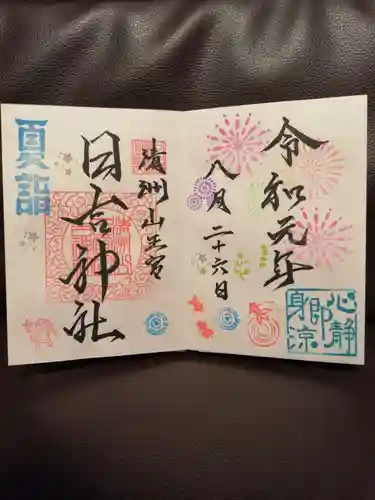 令和元年
八月二十六日
心静即身涼
清洲山王宮
日吉神社
夏詣